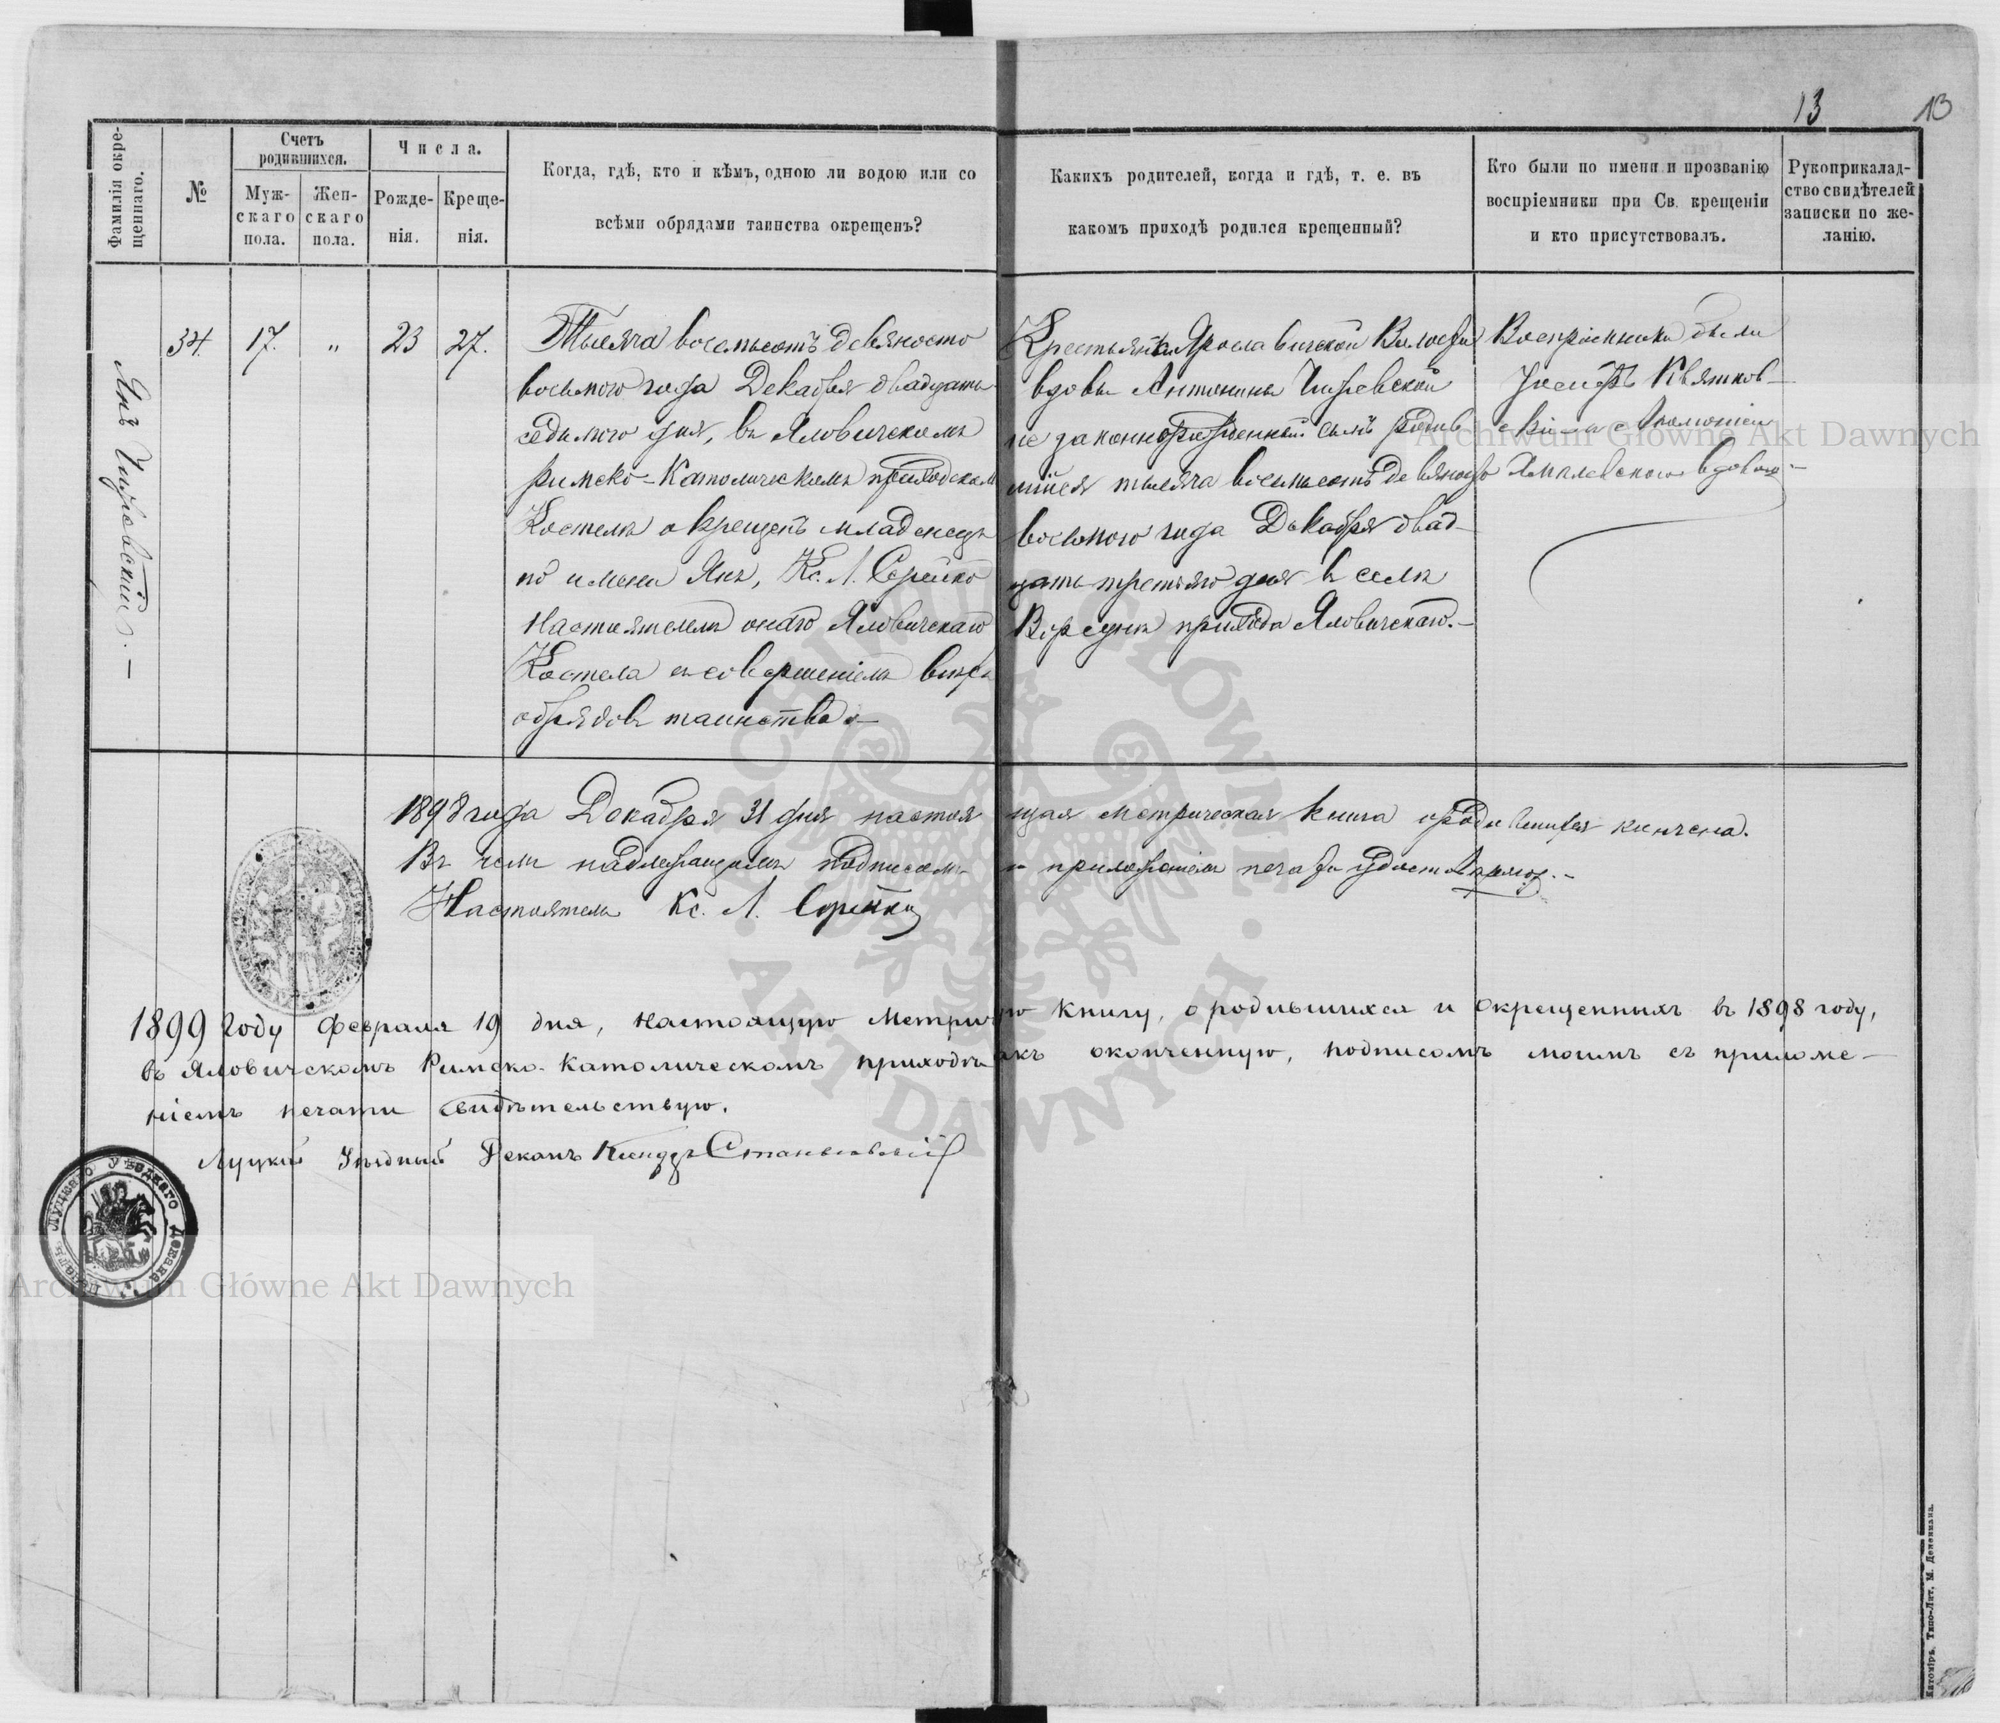 13
13
Фамилія окре-
щеннаго.
№
Счетъ
родившихся.
Муж-
скаго
пола.
Жен-
скаго
пола.
Числа.
Рожде-
нія.
Креще-
нія.
Когда, гдѣ, кто и кѣмъ, одною ли водою или со
всѣми обрядами таинства окрещенъ?
Какихъ родителей, когда и гдѣ, т. е. въ
какомъ приходѣ родился крещенный?
Кто были по имени и прозванію
воспріемники при Св. крещеніи
и кто присутствовалъ.
Рукоприкалад-
ство свидѣтелей
записки по же-
ланію.
Янъ
34.
17.
„
23
27.
Тысяча восемьсотъ девяносто
восьмого года Декабря двадцать
седьмого дня, въ Яловичскомъ
римско-Католическомъ приходскомъ
Костелѣ окрещенъ младенецъ
по имени Янъ, Кс. Л.
Настоятелемъ онаго Яловичскаго
Костела съ совершеніемъ всѣхъ
обрядовъ таинства.—
Крестьянки Ярославичской Волости
вдовы Антонины
незаконнорожденный сынъ родив
шійся тысяча восемьсотъ девяносто
восьмого года Декабря двад-
цать третьяго дня въ селѣ
прихода Яловичскаго.—
Воспріемники были
Іосифъ Квятков-
вдовою—
1898 года Декабря 31 дня настоящая метрическая книга о родившихся кончена.
Въ чемъ надлежащимъ подписомъ и приложеніемъ печати удостовѣряю.—
Настоятель Кс. Л.
1899 году Февраля 19 дня, настоящую Метричную книгу, о родившихся и окрещенныхъ въ 1898 году,
въ Яловичскомъ Римско-Католическомъ приходѣ какъ оконченную, подписомъ моимъ съ приложе-
ніемъ печати свидѣтельствую.
Луцкій Уѣздный Деканъ Ксендзъ
Archiwum Główne Akt Dawnych
Archiwum Główne Akt Dawnych
ARCHIWUM GŁÓWNE
AKT DAWNYCH